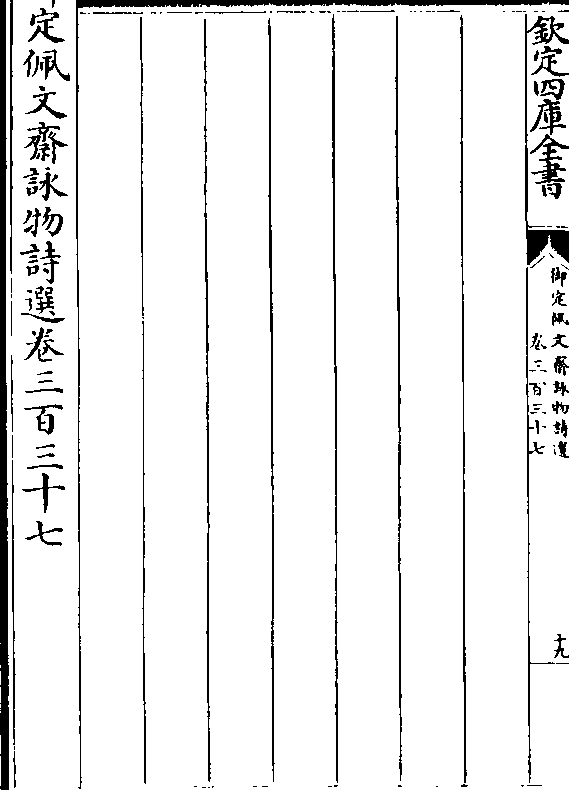 欽定四庫全書
御定佩文齋詠物詩選
卷三百三十七
十九
定佩文齋詠物詩選卷三百三十七